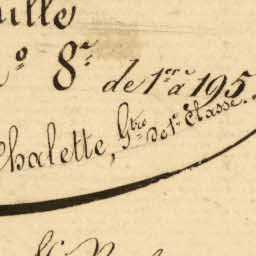 ille
o 8e de 1er à 195
Chalette, Gtre de 1e Classe.